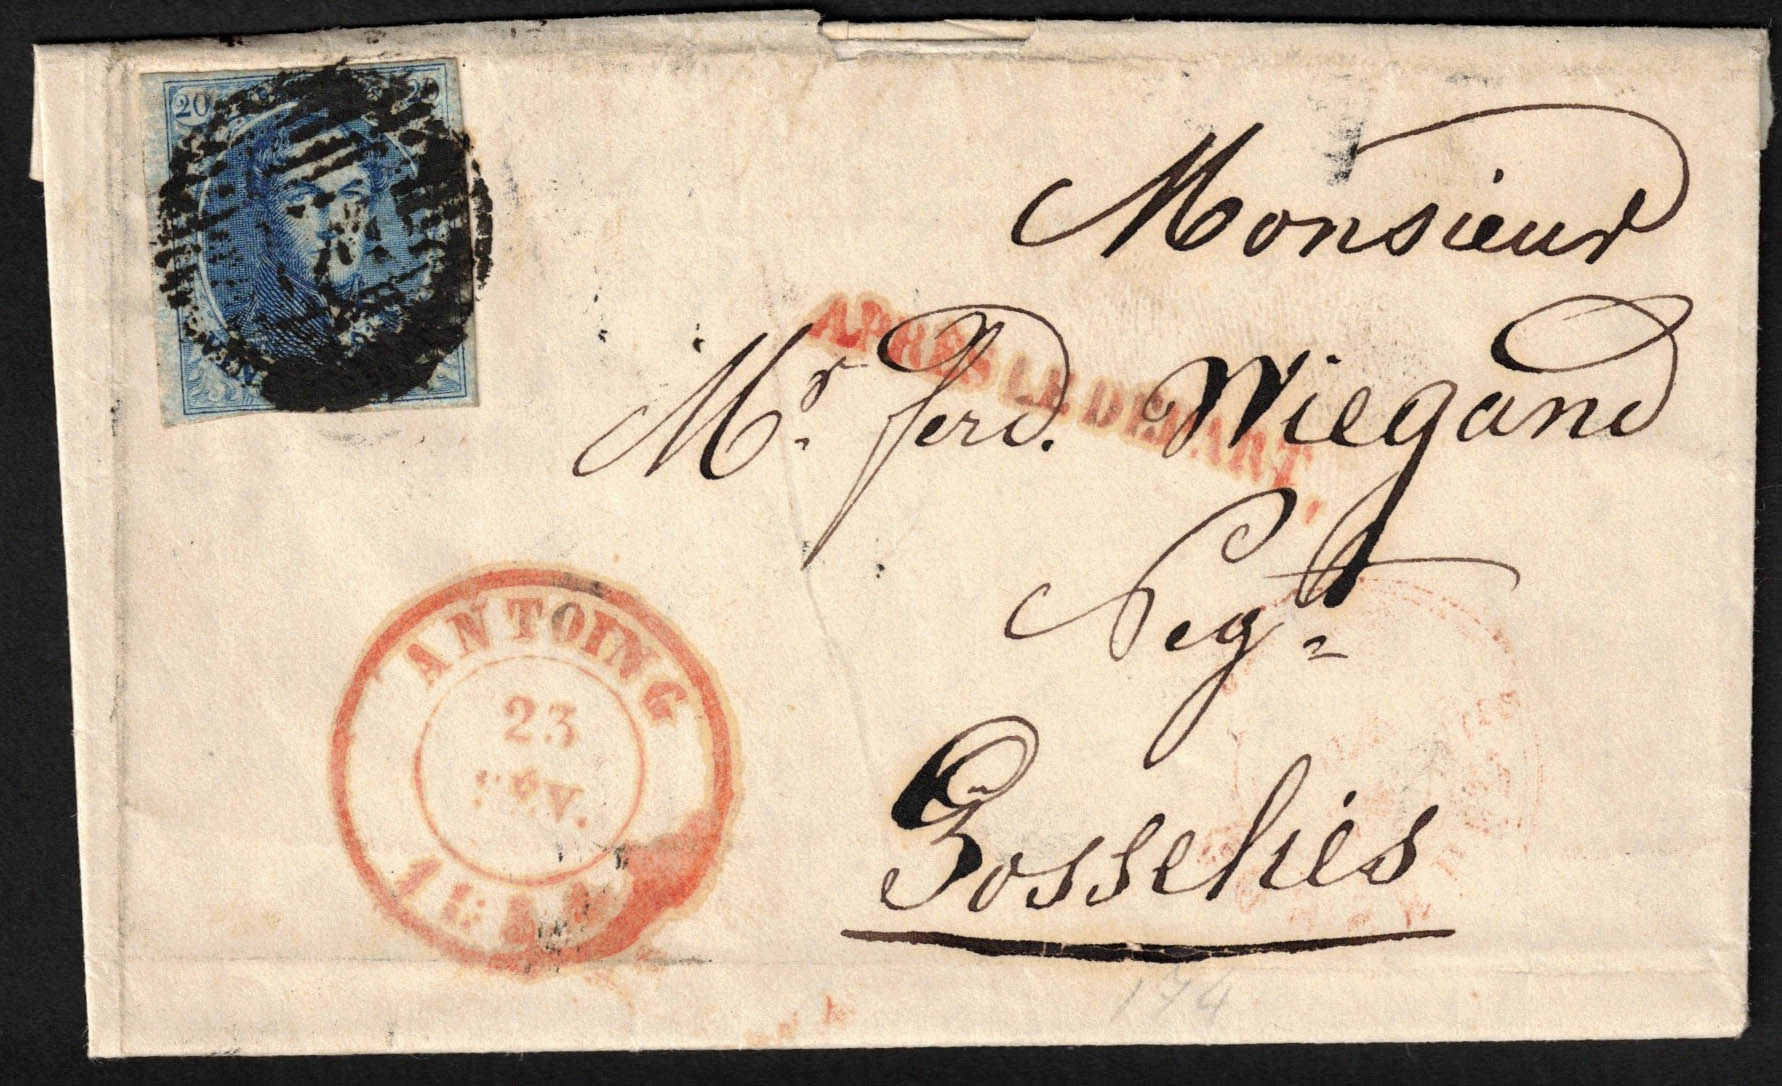 20 20
Monsieur
APRÈS LE DÉPART.
Mr. ferd. Wiegand
Negt
Gosselies
ANTOING
23
FÉV.
174